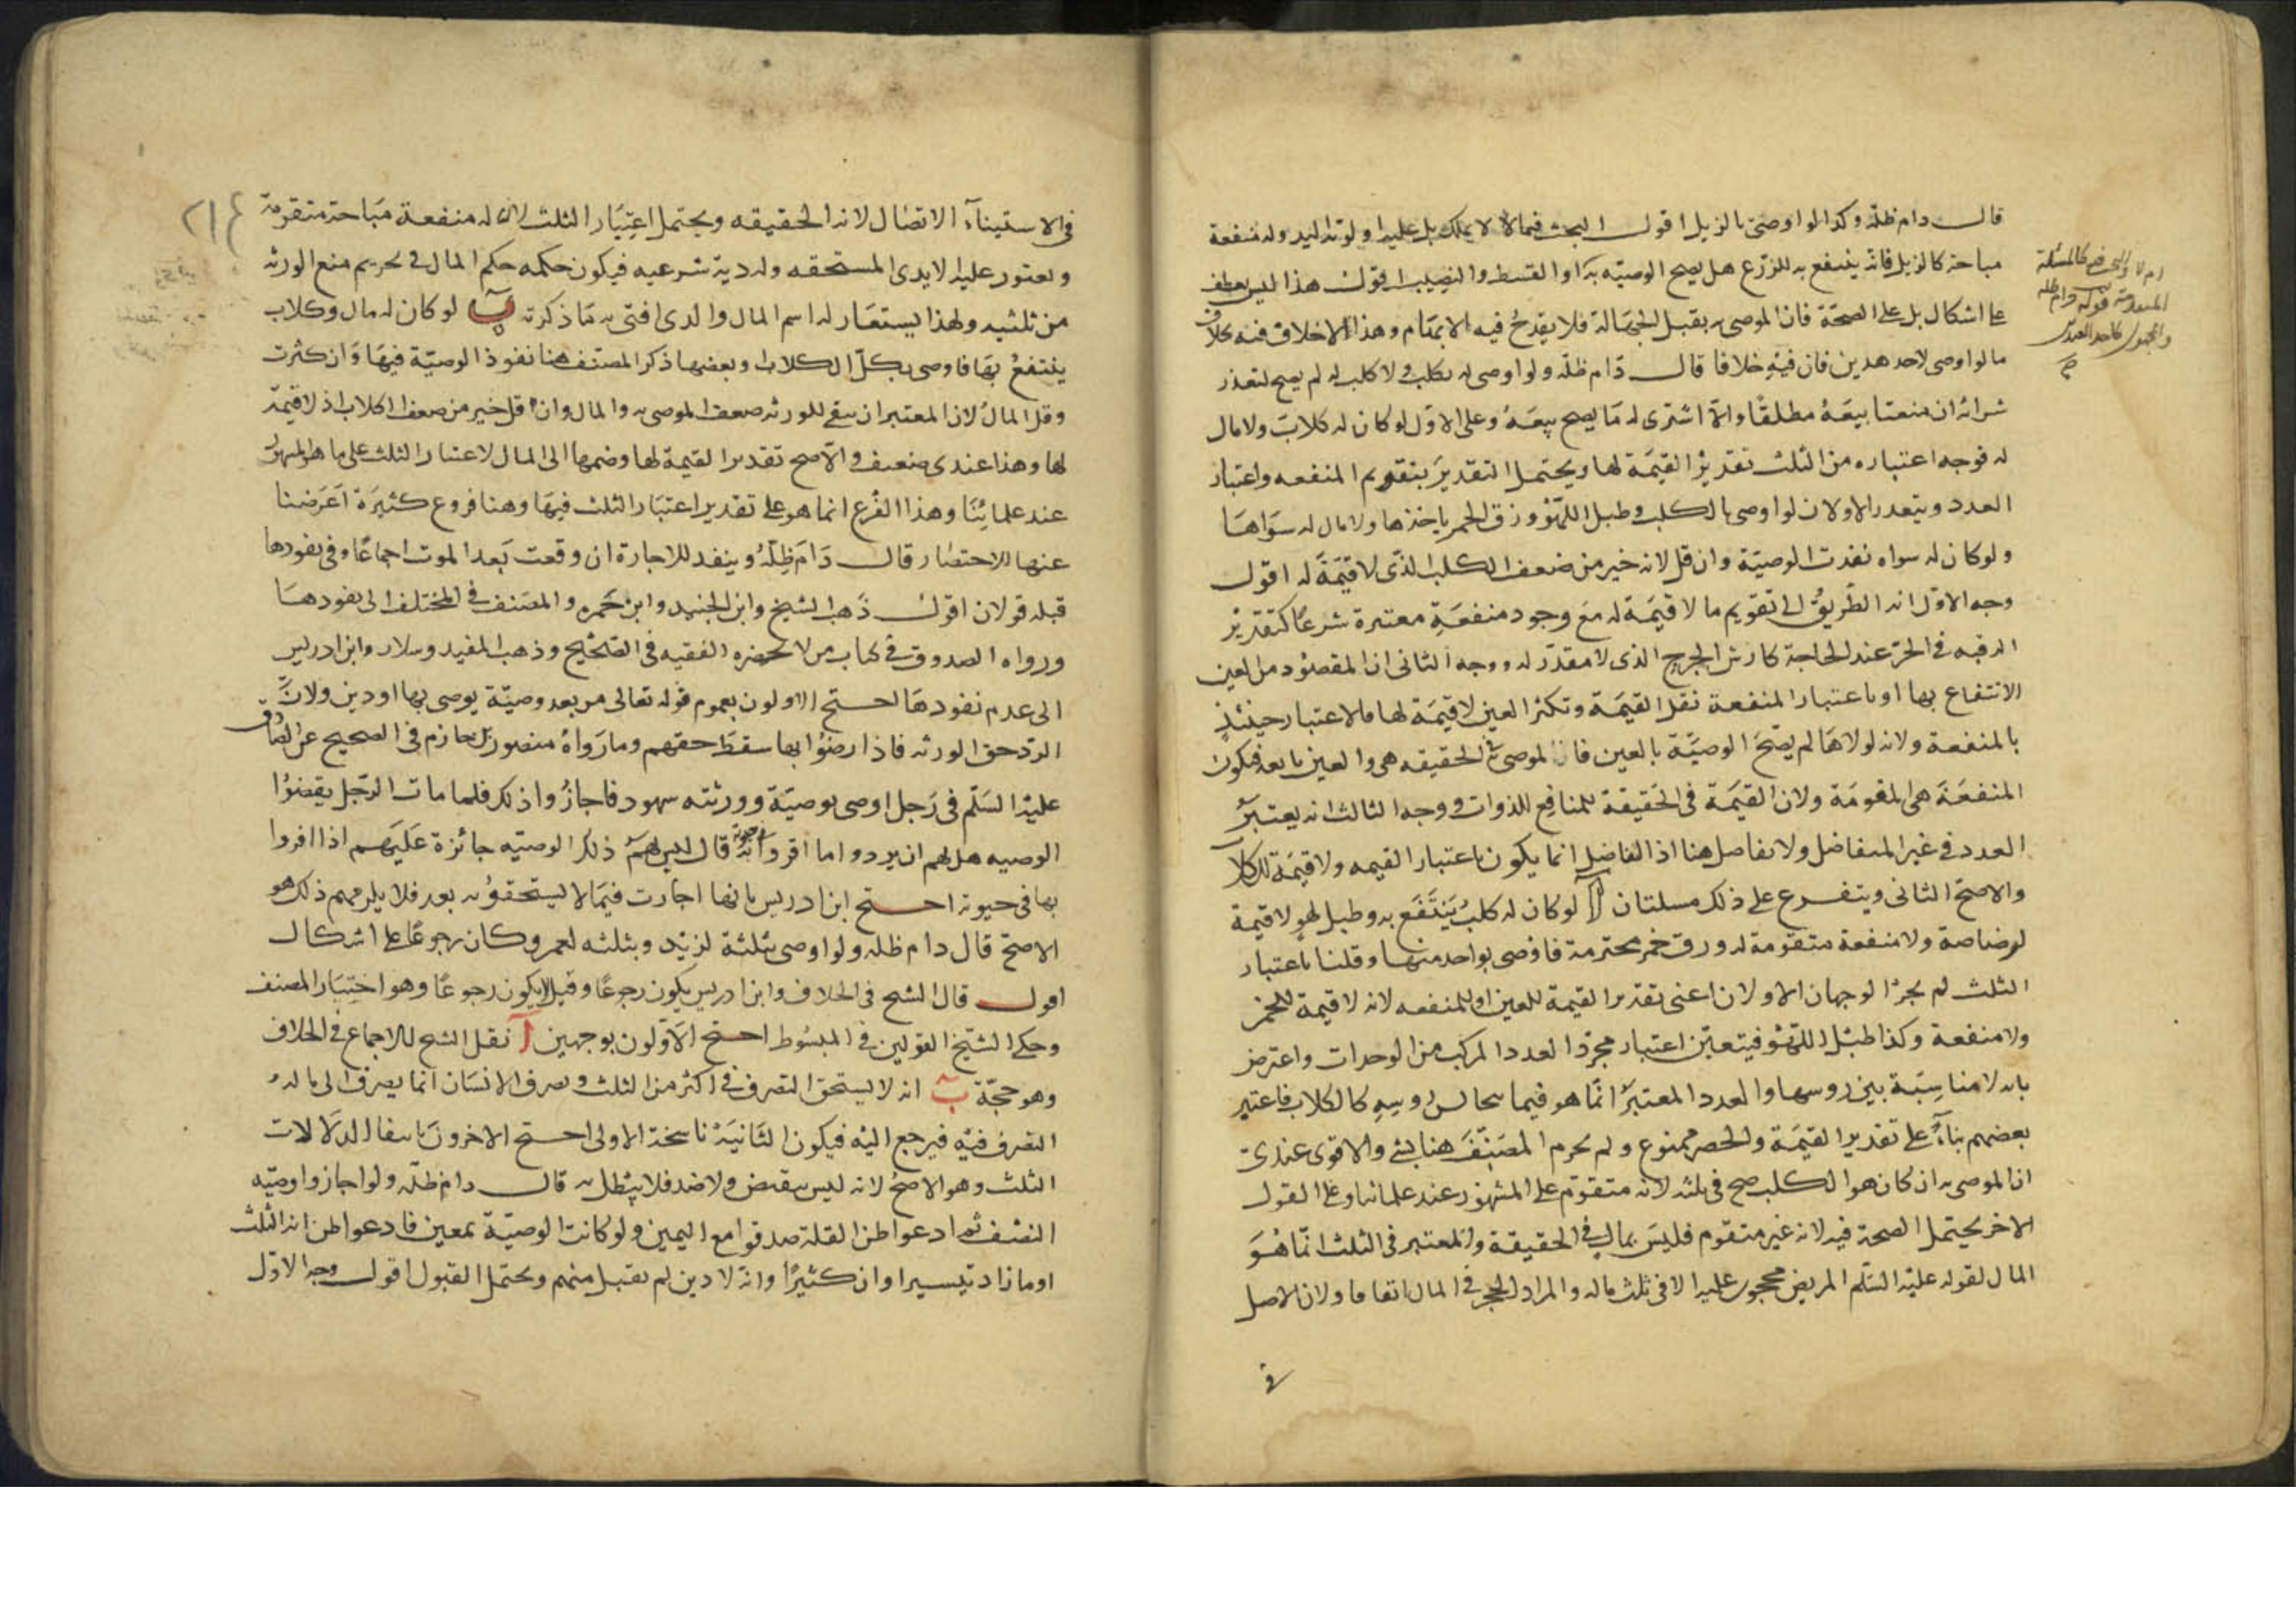 قال دام ظله وكذا لو اوصى بالزبل اقول البحث فيما لا يملك بل عليه اولوية اليد وله منفعة
مباحة كالزبل فانه ينتفع به للزرع هل يصح الوصية به او القسط والنصيب اقول هذا ليس بعطف
على اشكال بل على الصحة فان الموصى به يقبل الجهالة فلا يقدح فيه الابهام وهذا لا خلاف فيه بخلاف
ما لو اوصى لاحد هذين فان فيه خلافا قال دام ظله ولو اوصى له بكلب ولا كلب له لم يصح لتعذر
شرائه ان منعنا بيعه مطلقا والا اشترى له ما يصح بيعه وعلى الاول لو كان له كلاب ولا مال
له فوجه اعتباره من الثلث تقدير القيمة لها ويحتمل التقدير بتقويم المنفعه واعتبار
العدد ويتعذر الاولان لو اوصى بالكلب وطبل اللهو وزق الخمر باحدها ولا مال له سواها
ولو كان له سواه نفذت الوصية وان قل لانه خير من ضعف الكلب الذى لا قيمة له اقول
وجه الاول انه الطريق الى تقويم ما لا قيمة له مع وجود منفعة معتبرة شرعا كتقدير
الرقبه فى الحر عند الحاجة كارش الجرح الذى لا مقدر له ووجه الثانى ان المقصود من العين
الانتفاع بها او باعتبار المنفعة تقل القيمة وتكثر العين لا قيمة لها فالاعتبار حينئذ
بالمنفعة ولانه لولاها لم يصح الوصية بالعين فان الموصى به فى الحقيقه هى والعين تابعه فيكون
المنفعة هى المقومة ولان القيمة فى الحقيقة للمنافع للذوات ووجه الثالث انه يعتبر
العدد فى غير المتفاضل ولا تفاضل هنا اذ التفاضل انما يكون باعتبار القيمه ولا قيمة للكلاب
والاصح الثانى ويتفرع على ذلك مسئلتان آ لو كان له كلب ينتفع به وطبل لهو لا قيمة
لرضاضه ولا منفعة متقومة له وزق خمر محترمة فاوصى بواحد منها وقلنا باعتبار
الثلث لم يجز الوجهان الاولان اعنى تقدير القيمة للعين او للمنفعه لانه لا قيمة للخمر
ولا منفعة وكذا طبل اللهو فيتعين اعتبار مجرد العدد المركب من الوحدات واعترض
بانه لا مناسبة بين روسها والعدد المعتبر انما هو فيما كالكلاب فاعتبر
بعضهم بناء على تقدير القيمة والحصر ممنوع ولم يجزم المصنف هنا بشئ والاقوى عندى
ان الموصى به ان كان هو الكلب صح فى ثلثه لانه متقوم على المشهور عند علمائنا وعلى القول
الاخر يحتمل الصحة فيه لانه غير متقوم فليس بمال فى الحقيقة والمعتبر فى الثلث انما هو
المال لقوله عليه السلم المريض محجور عليه الا فى ثلث ماله والمراد الحجر فى المال اتفاقا ولان الاصل
فى
فى الاستثناء الاتصال لانه الحقيقه ويحتمل اعتبار الثلث لان له منفعة مباحة متقومة
٢١٤
ويعتور عليه الايدى المستحقه وله دية شرعيه فيكون حكمه حكم المال فى تحريم منع الورثه
من ثلثيه ولهذا يستعار له اسم المال والذى افتى به ما ذكرته ب لو كان له مال وكلاب
ينتفع بها فاوصى بكل الكلاب وبعضها ذكر المصنف هنا نفوذ الوصية فيها وان كثرت
وقل المال لان المعتبر ان يبقى للورثه ضعف الموصى به والمال وان قل خير من ضعف الكلاب اذ لا قيمة
لها وهذا عندى ضعيف والاصح تقدير القيمة لها وضمها الى المال لاعتبار الثلث على ما هو المشهور
عند علمائنا وهذا الفرع انما هو على تقدير اعتبار الثلث فيها وهنا فروع كثيرة اعرضنا
عنها للاختصار قال دام ظله وينفذ للاجازة ان وقعت بعد الموت اجماعا وفى نفوذها
قبله قولان اقول ذهب الشيخ وابن الجنيد وابن حمزه والمصنف فى المختلف الى نفوذها
ورواه الصدوق فى كتاب من لا يحضره الفقيه فى الصحيح وذهب المفيد وسلار وابن ادريس
الى عدم نفوذها احتج الاولون بعموم قوله تعالى من بعد وصية يوصى بها او دين ولان
الرد حق الورثه فاذا رضوا بها سقط حقهم وما رواه منصور بن حازم فى الصحيح عن الصادق
عليه السلم فى رجل اوصى بوصية وورثته شهود فاجازوا ذلك فلما مات الرجل نقضوا
الوصيه هل لهم ان يردوا ما اقروا به فى حيوته قال ليس لهم ذلك الوصيه جائزة عليهم اذا اقروا
بها فى حيوته احتج ابن ادريس بانها اجازت فيما لا يستحقونه بعد فلا يلزمهم ذلك وهو
الاصح قال دام ظله ولو اوصى بثلثه لزيد وبثلثه لعمرو كان رجوعا على اشكال
اقول قال الشيخ فى الخلاف وابن ادريس يكون رجوعا وقيل لا يكون رجوعا وهو اختيار المصنف
وحكى الشيخ القولين فى المبسوط احتج الاولون بوجهين آ نقل الشيخ للاجماع فى الخلاف
وهو حجة ب انه لا يستحق التصرف فى اكثر من الثلث وتصرف الانسان انما يصرف الى ما له
التصرف فيه فيرجع اليه فيكون الثانية ناسخة الاولى احتج الاخرون بانتفاء الدلالات
الثلث وهو الاصح لانه ليس بنقيض ولا ضد فلا يبطل به قال دام ظله ولو اجازوا وصية
النصف ثم ادعوا ظن القلة صدقوا مع اليمين ولو كانت الوصية بمعين فادعوا ظن انه الثلث
او ما زاد بيسير او ان كثيرا وانه لا دين لم يقبل منهم ويحتمل القبول اقول وجه الاول